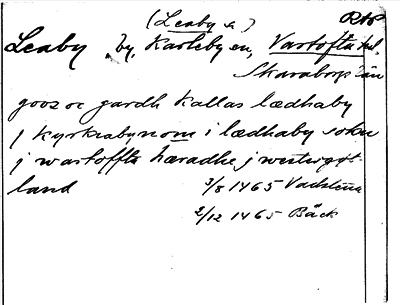 (Leaby a)
RAP
Leaby by, Karleby sn, Vartofta hd.
Skaraborgs län
gooz oc gardh kallas lædhaby
j kyrkiabynom i lædhaby sokn
j wartoffta hæradhe j westergøt-
land 3/8 1465 Vadstena
2/12 1465 Bäck